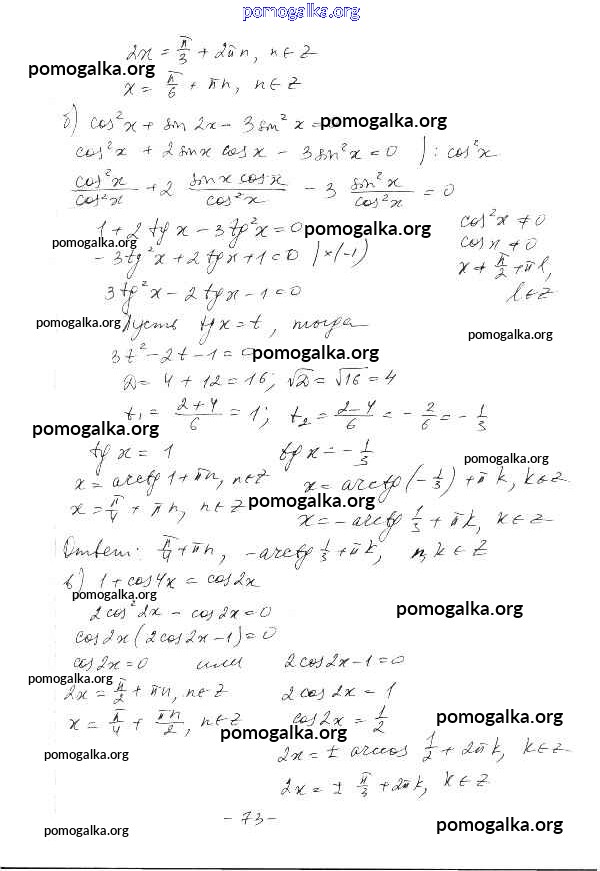 pomogalka.org
2x = π/3 + 2πn, n ∈ Z
pomogalka.org
x = π/6 + πn, n ∈ Z
б) cos²x + sin 2x - 3 sin²x = pomogalka.org
cos²x + 2 sinx cosx - 3 sin²x = 0 ) : cos²x
cos²x/cos²x + 2 sinx cosx/cos²x - 3 sin²x/cos²x = 0
1 + 2 tg x - 3 tg²x = 0 pomogalka.org cos²x ≠ 0
pomogalka.org cosx ≠ 0
- 3 tg²x + 2 tgx + 1 = 0 |×(-1) x ≠ π/2 + πl,
3 tg²x - 2 tgx - 1 = 0 l ∈ Z
pomogalka.org Пусть tgx = t, тогда pomogalka.org
3t² - 2t - 1 = 0 pomogalka.org
D = 4 + 12 = 16; √D = √16 = 4
t₁ = 2+4/6 = 1; t₂ = 2-4/6 = - 2/6 = - 1/3
pomogalka.org
tg x = 1 tg x = - 1/3 pomogalka.org
x = arctg 1 + πn, n ∈ Z x = arctg (- 1/3) + πk, k ∈ Z
x = π/4 + πn, n ∈ Z pomogalka.org x = - arctg 1/3 + πk, k ∈ Z
Ответ: π/4 + πn, - arctg 1/3 + πk, n, k ∈ Z
в) 1 + cos4x = cos2x
pomogalka.org
2cos²2x - cos2x = 0 pomogalka.org
cos2x (2cos2x - 1) = 0
cos2x = 0 или 2cos2x - 1 = 0
pomogalka.org
2x = π/2 + πn, n ∈ Z 2 cos 2x = 1
x = π/4 + πn/2, n ∈ Z cos2x = 1/2 pomogalka.org
pomogalka.org
pomogalka.org 2x = ± arccos 1/2 + 2πk, k ∈ Z
2x = ± π/3 + 2πk, k ∈ Z
- 73 -
pomogalka.org pomogalka.org